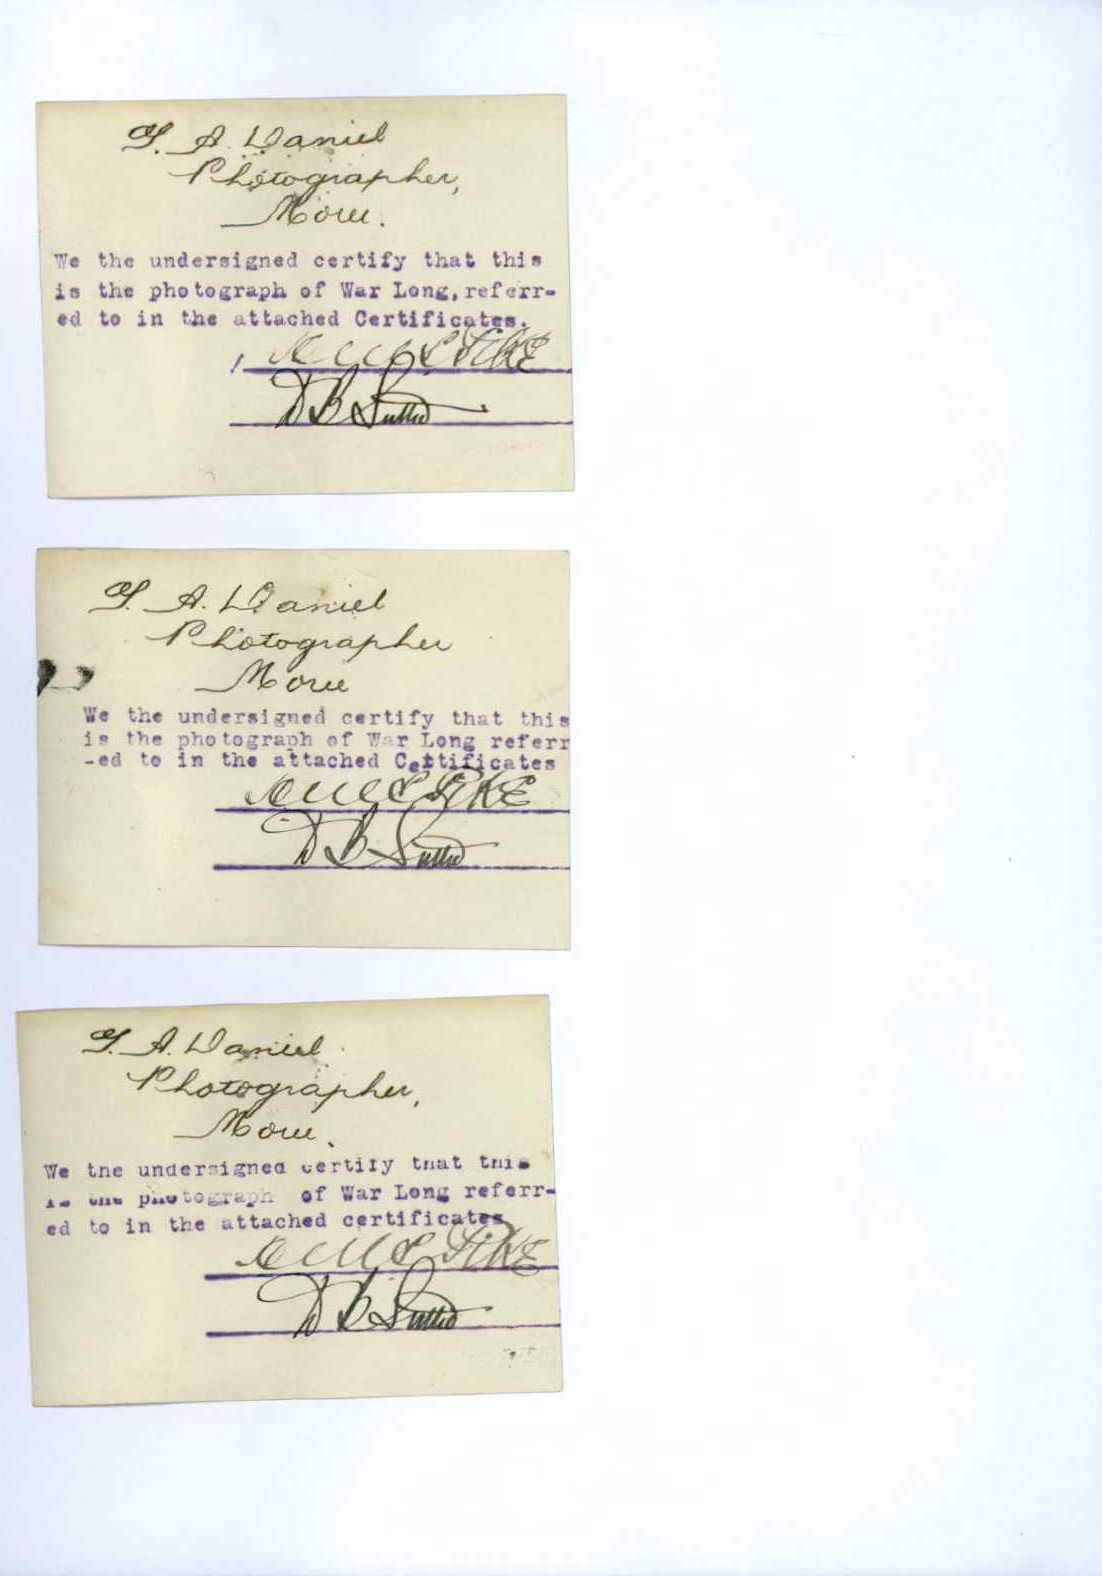 A. Daniel
Photographer,
Moree.
We the undersigned certify that this
is the photograph of War Long, referr-
ed to in the attached Certificates.
D B
A. Daniel
Photographer
Moree
We the undersigned certify that this
is the photograph of War Long referr
-ed to in the attached Certificates
D B
A. Daniel
Photographer,
Moree.
We the undersigned certify that this
is the photograph of War Long referr-
ed to in the attached certificates
D B